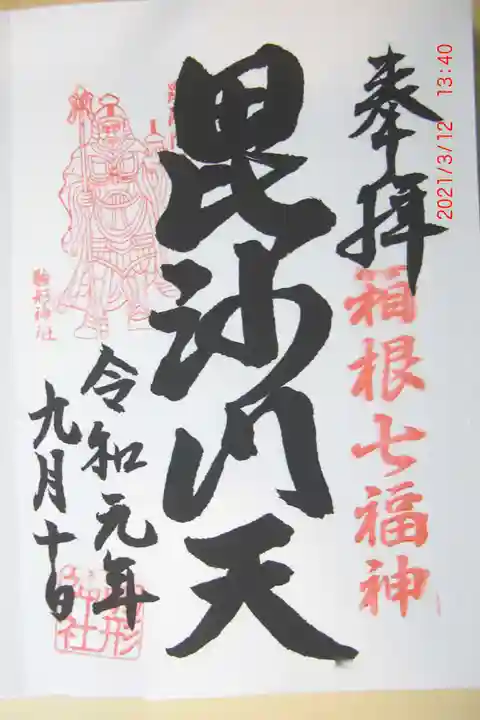 奉拝
箱根七福神
毘沙門天
駒形神社
令和元年
九月十日
駒形
神社
2021/3/12 13:40